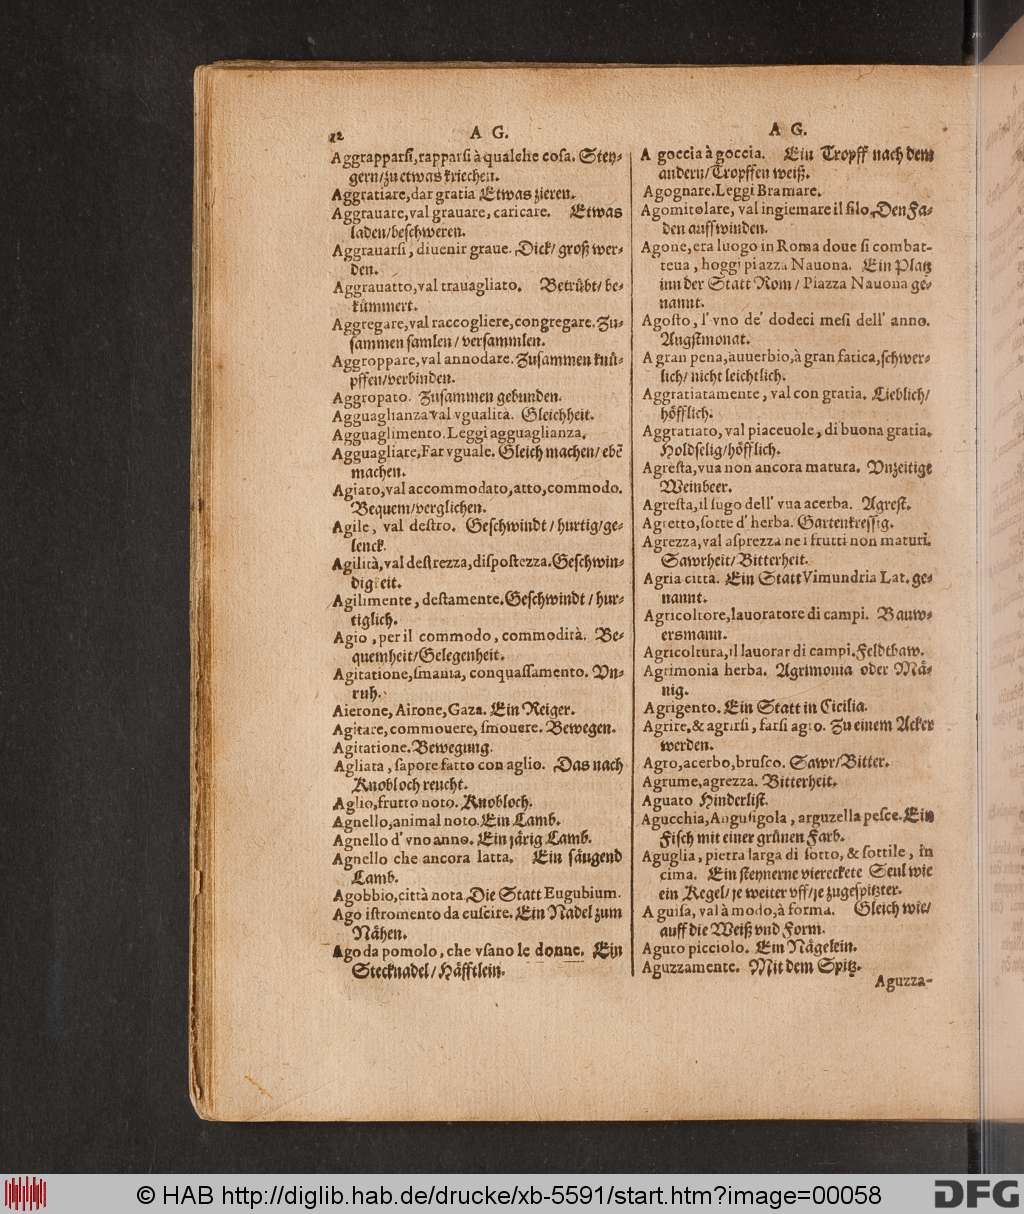 12
A G.
Aggrapparsi, rapparsi à qualche cosa. Stey-
gern/zu etwas kriechen.
Aggratiare, dar gratia Etwas zieren.
Aggrauare, val grauare, caricare. Etwas
laden/beschweren.
Aggrauarsi, diuenir graue. Dick/ groß wer-
den.
Aggrauatto, val trauagliato. Betrübt/ be-
kümmert.
Aggregare, val raccogliere, congregare. Zu-
sammen samlen / versammlen.
Aggroppare, val annodare. Zusammen knü-
pffen/verbinden.
Aggropato. Zusammen gebunden.
Agguaglianza val vgualità. Gleichheit.
Agguaglimento. Leggi agguaglianza.
Agguagliare, Far vguale. Gleich machen/ ebē
machen.
Agiato, val accommodato, atto, commodo.
Bequem/verglichen.
Agile, val destro. Geschwindt / hurtig/ge-
lenck.
Agilità, val destrezza, dispostezza. Geschwin-
digkeit.
Agilimente, destamente. Geschwindt / hur-
tiglich.
Agio, per il commodo, commodità. Be-
quemheit/Gelegenheit.
Agitatione, smania, conquassamento. Vn-
ruh.
Aierone, Airone, Gaza. Ein Reiger.
Agitare, commouere, smouere. Bewegen.
Agitatione. Bewegung.
Agliata, sapore fatto con aglio. Das nach
Knobloch reucht.
Aglio, frutto noto. Knobloch.
Agnello, animal noto. Ein Lamb.
Agnello d' vno anno. Ein järig Lamb.
Agnello che ancora latta. Ein säugend
Lamb.
Agobbio, città nota. Die Statt Eugubium.
Ago istromento da cuscire. Ein Nadel zum
Nähen.
Ago da pomolo, che vsano le donne. Ein
Stecknadel/ Häfftlein.
A G.
A goccia à goccia. Ein Tropff nach dem
andern/Tropffen weiß.
Agognare. Leggi Bramare.
Agomitolare, val ingiemare il filo. Den Fa-
den auffwinden.
Agone, era luogo in Roma doue si combat-
teua, hoggi piazza Nauona. Ein Platz
inn der Statt Rom / Piazza Nauona ge-
nannt.
Agosto, l' vno de' dodeci mesi dell' anno.
Augstmonat.
A gran pena, auuerbio, à gran fatica, schwer-
lich/ nicht leichtlich.
Aggratiatamente, val con gratia. Lieblich/
höfflich.
Aggratiato, val piaceuole, di buona gratia.
Holdselig/höfflich.
Agresta, vua non ancora matura. Vnzeitige
Weinbeer.
Agresta, il sugo dell' vua acerba. Agrest.
Agretto, sorte d' herba. Gartenkressig.
Agrezza, val asprezza ne i frutti non maturi.
Sawrheit/ Bitterheit.
Agria citta. Ein Statt Vimundria Lat. ge-
nannt.
Agricoltore, lauoratore di campi. Bauw-
ersmann.
Agricoltura, il lauorar di campi. Feldtbaw.
Agrimonia herba. Agrimonia oder Mä-
nig.
Agrigento. Ein Statt in Cicilia.
Agrire, & agrirsi, farsi agro. Zu einem Acker
werden.
Agro, acerbo, brusco. Sawr/ Bitter.
Agrume, agrezza. Bitterheit.
Aguato Hinderlist.
Agucchia, Angusigola, arguzella pesce. Ein
Fisch mit einer grünen Farb.
Aguglia, pietra larga di sotto, & sottile, in
cima. Ein steynerne viereckete Seul wie
ein Kegel/ je weiter vff/je zugespitzter.
A guisa, val à modo, à forma. Gleich wie/
auff die Weiß vnd Form.
Aguto picciolo. Ein Nägelein.
Aguzzamente. Mit dem Spitz.
Aguzza-
© HAB http://diglib.hab.de/drucke/xb-5591/start.htm?image=00058
DFG